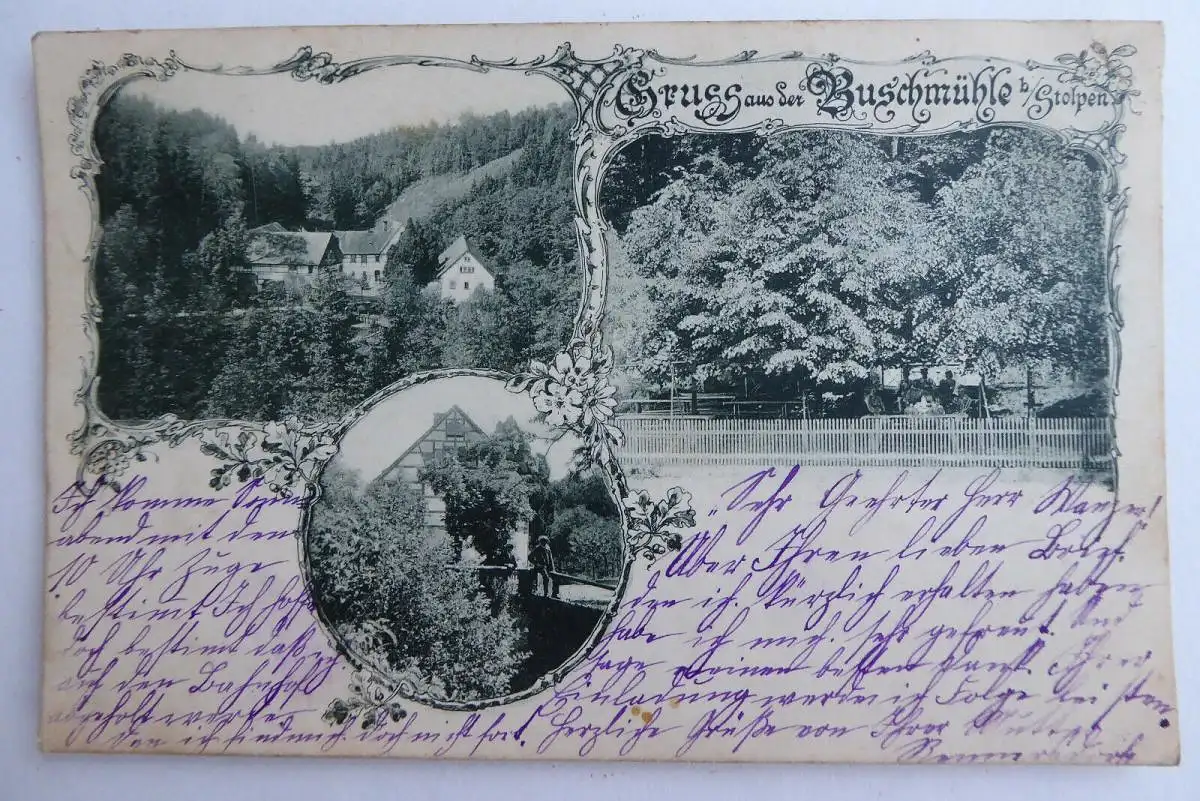 Gruss aus der Buschmühle b/Stolpen
Sehr Geehrter Herr
Über Ihren lieben Brief.
den ich. kürzlich erhalten haben
habe ich mich. sehr gefreut. Und
sage meinen besten Dank. Ihrer
Einladung werde ich Folge leisten.
Herzliche Grüße von Ihrer
Ich komme Sonn
abend mit dem
10 Uhr Zuge
bestimt Ich hoffe
doch bestimt daß ich
auf den Bahnhof
abgeholt werde
den ich find mich doch nicht fort.